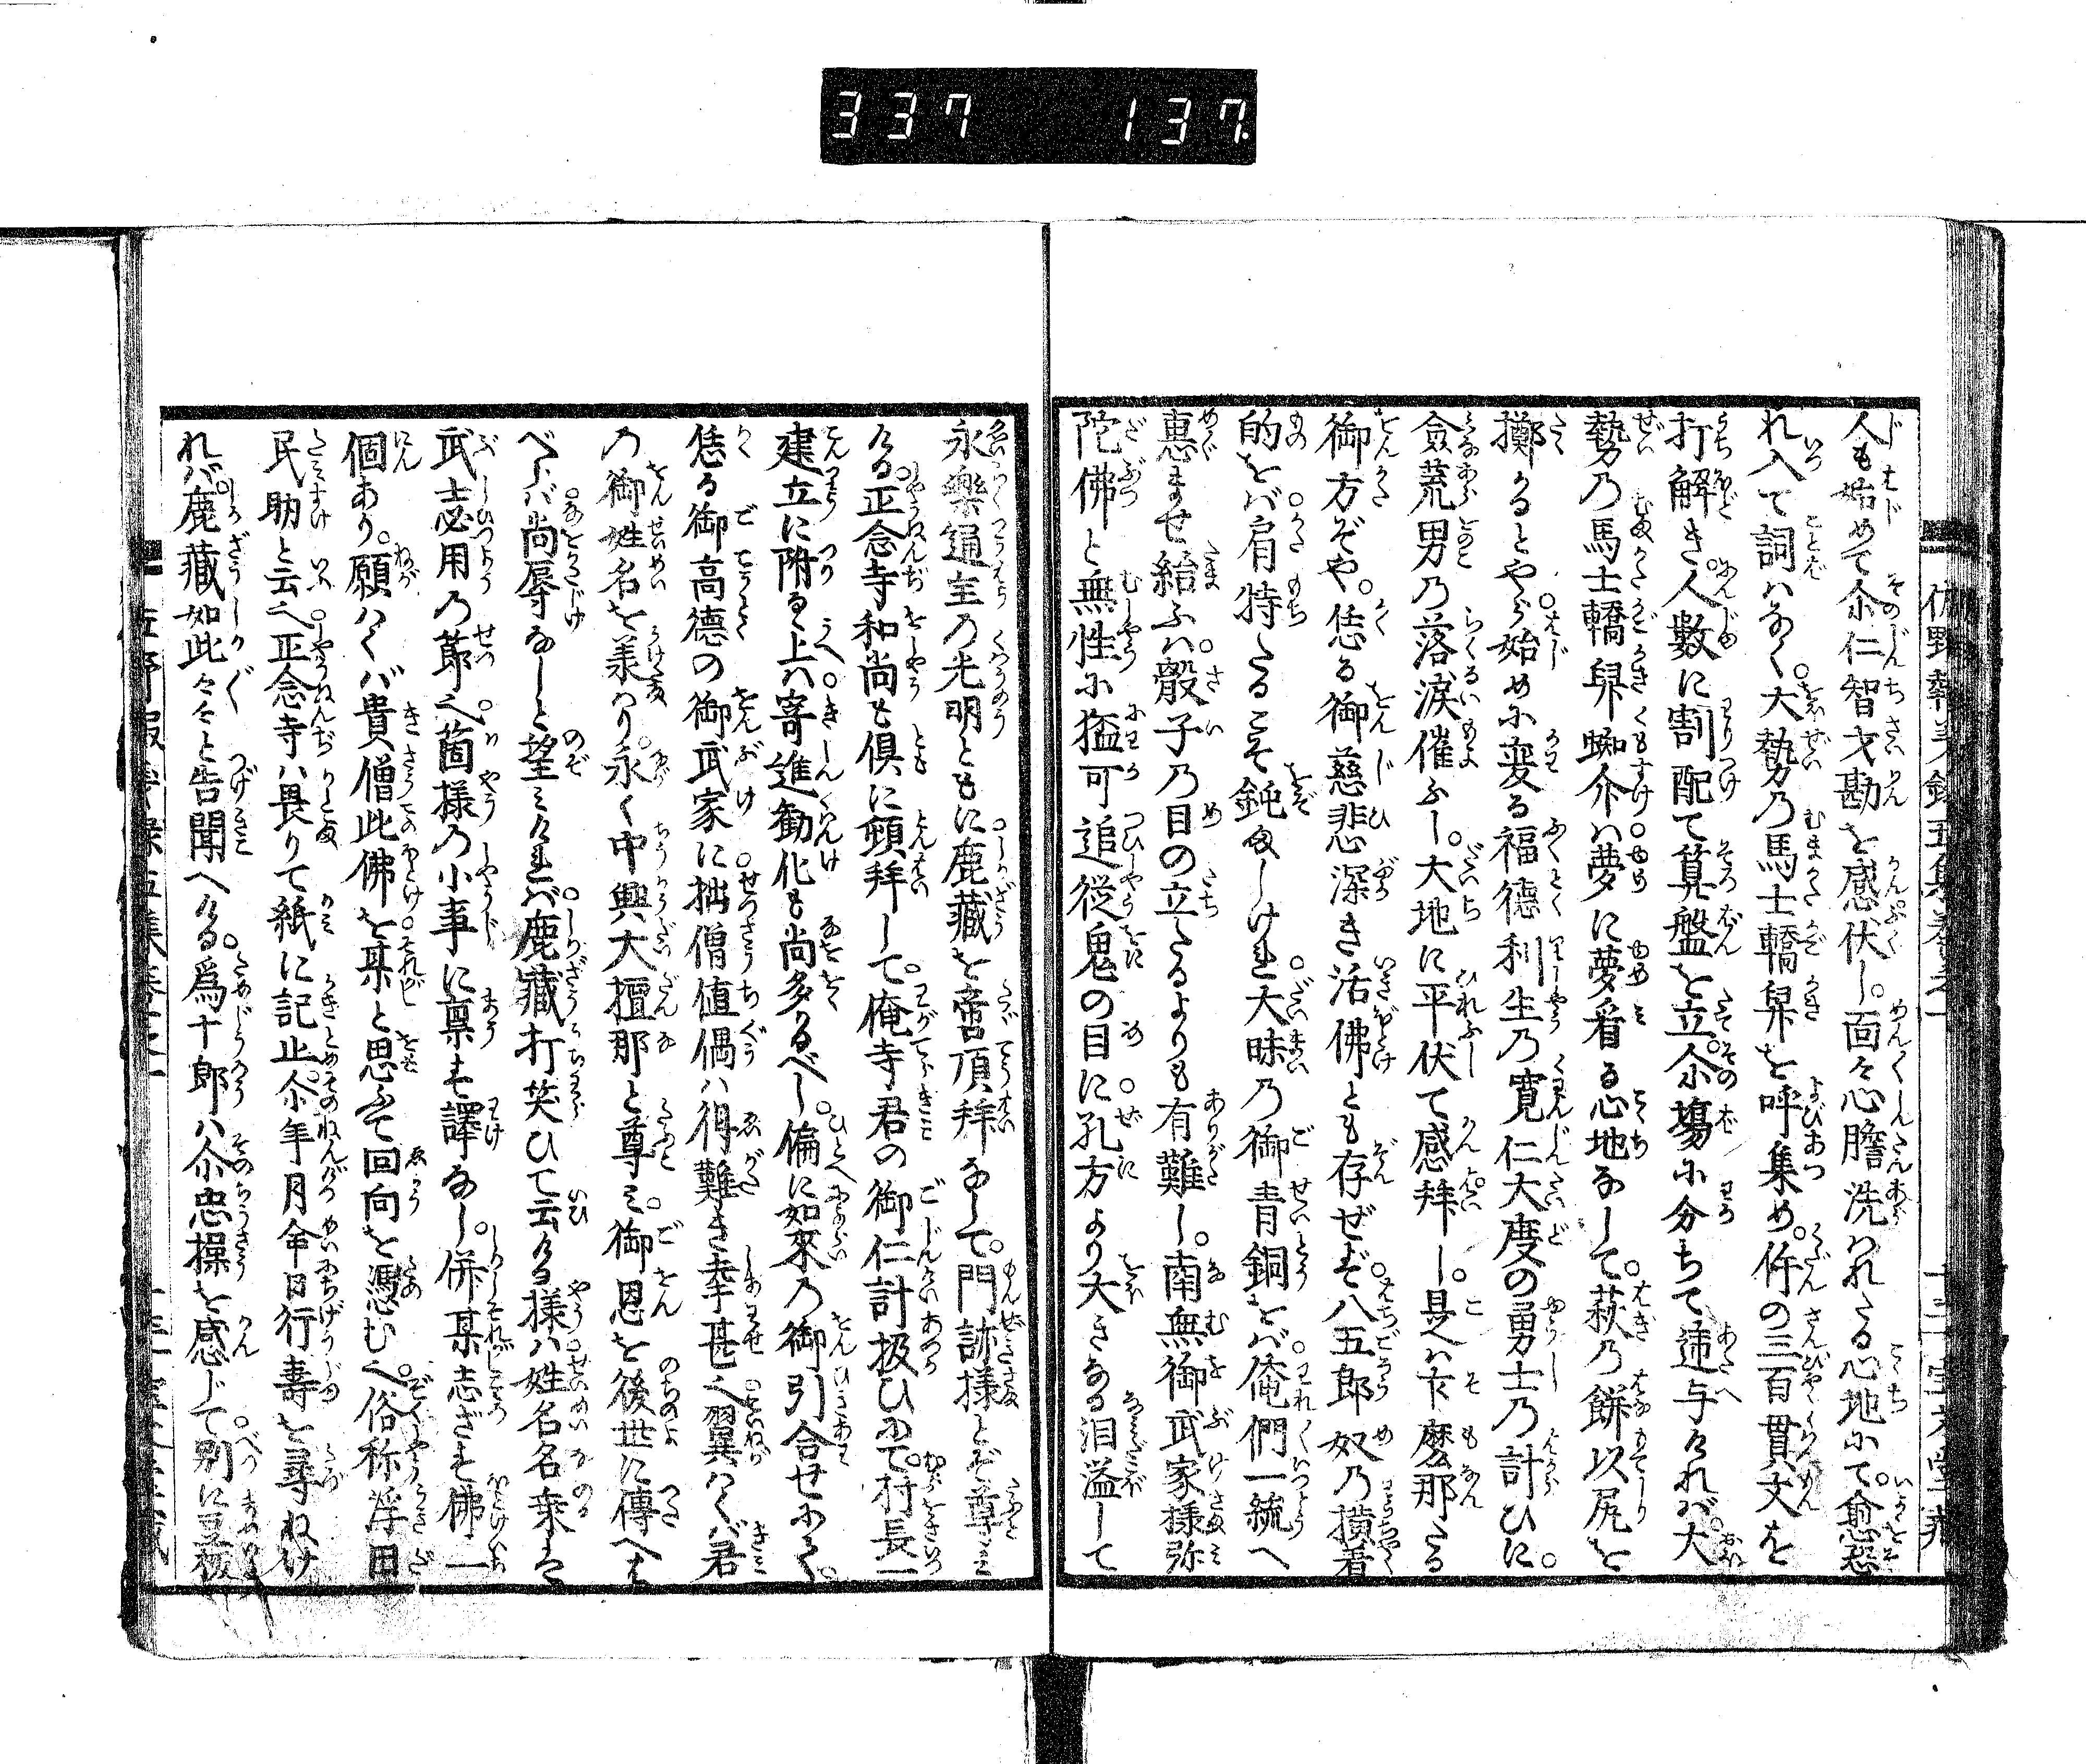 337 137
人も始めて尒仁智才勘を感伏し。面々心膽洗はれたる心地にて。愈惑
れ入て詞はなく。大勢乃馬士轎舁を呼集め。件の三百貫文を
打解き。人數に割配て算盤を立。尒塲に分ちて遞与けれバ。大
勢乃馬士轎舁蜘介は夢に夢看る心地なして。萩乃餅以尻を
擲かるとやら始めに変る福德利生乃寛仁大度の勇士乃計ひに。
僉荒男乃落涙催ふし。大地に平伏て感拜し。是は什麽那たる
御方ぞや。恁る御慈悲深き活佛とも存ぜず。八五郎奴乃横着
的をバ肩持たるこそ鈍ましけれ。大昧乃御青銅をバ。俺們一統へ
惠ませ給ふは。骰子乃目の立たるよりも有難し。南無御武家様弥
陀佛と無性に猛可追從鬼の目に。孔方より大きなる泪溢して
永樂通宝乃光明ともに鹿藏を啻頂拜なして。門跡様とぞ尊み
ける。正念寺和尚も倶に頓拜して。俺寺君の御仁計扱ひにて。村長一
建立に附る上は。寄進勧化も尚多かるべし。偏に如來乃御引合せにて。
恁る御高德の御武家に。拙僧値偶は得難き幸甚也。翼はくバ君
乃御姓名を羨はり。永く中興大檀那と尊み。御恩を後世に傳へな
べらバ尚辱なしと望みけれバ。鹿藏打笑ひて云ける様は。姓名名乗は
武士必用乃節也。箇様乃小事に稟す譯なし。併某志ざす佛一
個あり。願はくバ貴僧此佛を某と思ふて回向を憑む也。俗称浮田
民助と云也。正念寺は畏りて紙に記止。尒年月命日行壽を尋ねけ
れバ。鹿藏如此々々と告聞へける。爲十郎は尒忠操を感じて。別に